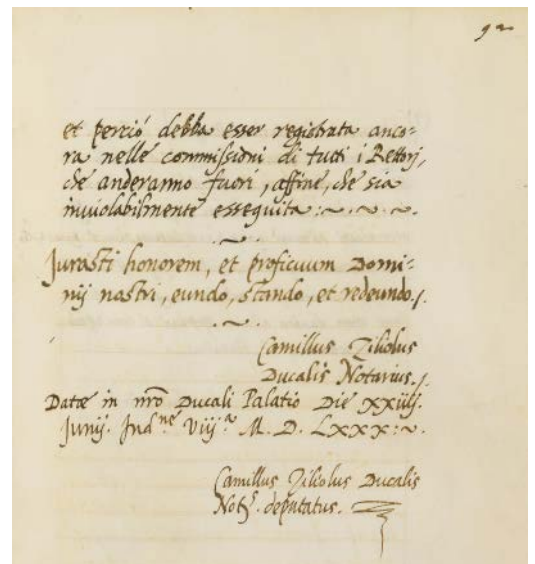 et perciò debba esser registrata anco=
ra nelle commissioni di tutti i Rettori,
che anderanno fuori, affine, che sia
inviolabilmente essequita:~.~.~.
Jurasti honorem, et proficuum Domi=
nij nostri, eundo, stando, et redeundo./.
Camillus Ziliolus
Ducalis Notarius./.
Datae in nro Ducali Palatio Die XXiiij.
Junij. Ind.ne Viij.a M. D. LXXX:~.
Camillus Ziliolus Ducalis
Not.s deputatus.